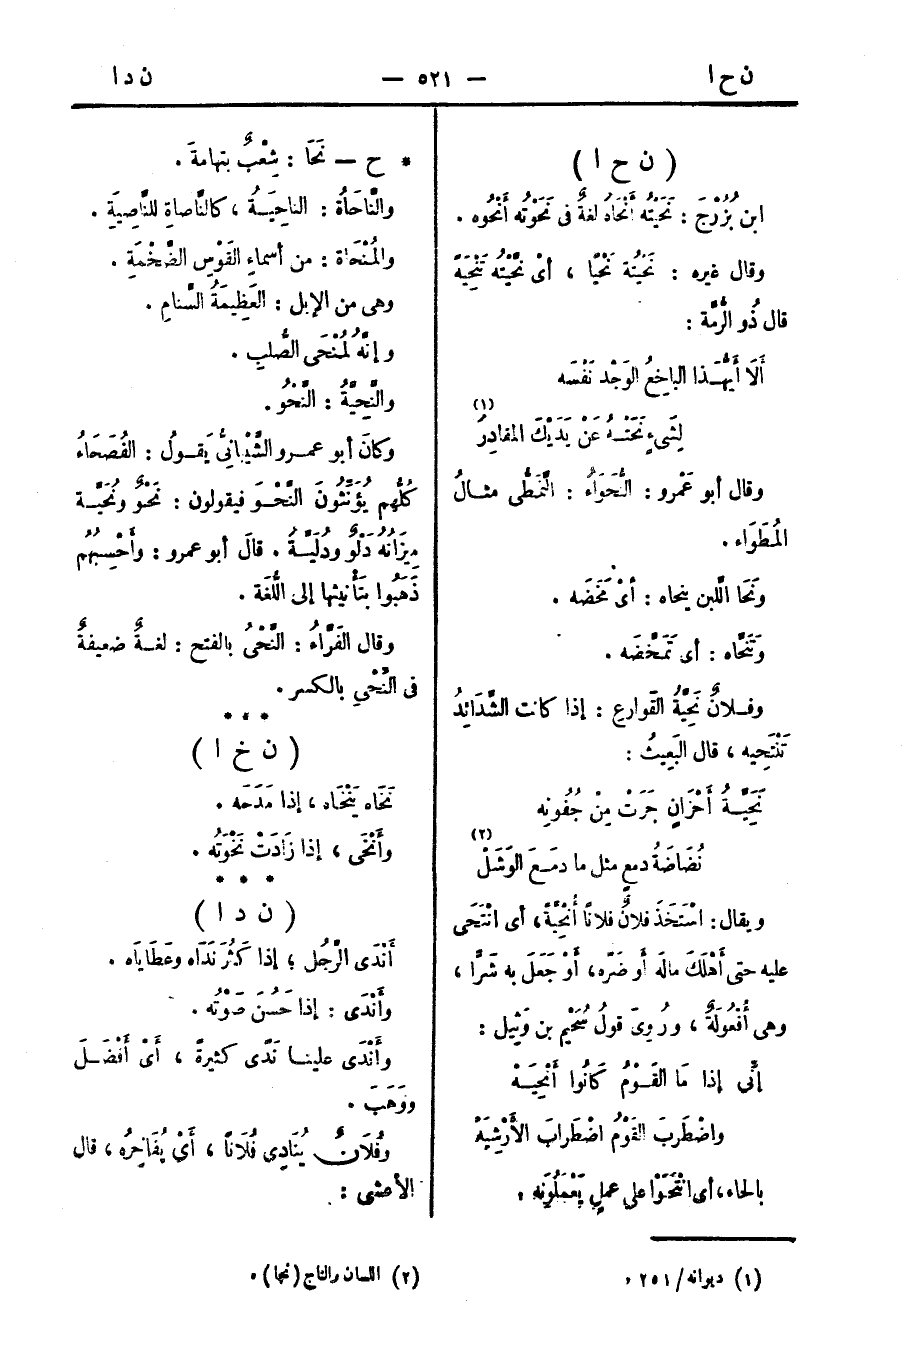 ن ح ا
— ٥٢١ —
ن د ا
( ن ح ا )
ابن بُزُرْجَ : نَحَيْتُه أَنْحَاهُ لغةٌ فى نَحَوْتُه أَنْحُوه .
وقال غيره : نَحَيْتُه نَحْيًا ، أىْ نَحَّيْتُه تَنْحِيَةً
قال ذُو الرُّمَّة :
أَلَا أَيُّهَـذا الباخِعُ الوَجْد نَفْسَه
لِشَىءٍ نَحَتْـهُ عَنْ يَدَيْكَ المقادِرُ (١)
وقال أبو عَمْرو : النُّحَوَاءُ : التَّمَطِّى مثـالُ
المُطَوَاء .
ونَحَا اللَّبن ينحاه : أىْ مَخَضَه .
وتَنَحَّاه : أى تَمَخَّضَه .
وفـلانٌ نَحِيَّةُ القَوارعِ : إذا كانت الشَّدَائِدُ
تَنْتَحِيه ، قال البَعِيثُ :
نَحِيَّـةُ أَحْزَانٍ جَرَتْ مِنْ جُفُونِه
نُضَاضَةُ دمعٍ مثل ما دمَـعَ الوَشَلْ (٢)
ويقال : اسْتَخَذَ فلانٌ فلانًا أُنْحِيَّةً ، أى انْتَحَى
عليه حتى أَهْلَكَ مالَه أو ضَرَّه ، أوْ جَعَلَ به شَرًّا ،
وهى أُفْعُولَةٌ ، ورُوِىَ قولُ سُحَيْمِ بن وَثِيل :
إنِّى إذا مَا القَـوْمُ كَانُوا أَنْحِيَـهْ
واضْطَربَ القَوْمُ اضْطَرابَ الأَرْشِيَهْ
بالحاء ، أى انْتَحَوْا على عملٍ يَعْمَلُونَه .
(١) ديوانه / ٢٥١ .
* ح — نَحَا : شِعْبٌ بتهامةَ .
والنَّاحَاةُ : الناحِيَـةُ ، كالنَّاصاةِ للنَّاصِيَةِ .
والمُنْحَاة : من أسماءِ القَوْسِ الضَّخْمَةِ .
وهى من الإبل : العَظِيمَةُ السَّنامِ .
وإنَّه لمُنْحَى الصُّلبِ .
والنَّحِيَّةُ : النَّحْوُ .
وكانَ أبو عمـرو الشَّيْبانىُّ يَقـولُ : الفُصَحَاءُ
كُلُّهم يُؤَنِّثُونَ النَّحْـوَ فيقولون : نَحْوٌ ونُحَيَّـة
مِيزَانُهُ دَلْوٌ ودُلَيَّـةٌ . قالَ أبو عمرو : وأَحْسِبُهُم
ذَهَبُوا بتَأْنيثها إلى اللُّغَة .
وقال الفَرَّاءُ : النَّحْىُ بالفتح : لغـةٌ ضعيفةٌ
فى النِّحْىِ بالكسر .
* * *
( ن خ ا )
نَخَاه يَنْخَاه ، إذا مَدَحَه .
وأَنْخَى ، إذا زَادَتْ نَخْوَتُه .
* * *
( ن د ا )
أَنْدَى الرَّجُل ؛ إذا كَثُرَ نَدَاه وعَطَايَاه .
وأَنْدَى : إذا حَسُنَ صَوْتُه .
وأَنْدَى علينـا نَدًى كثيرةً ، أىْ أَفْضَـلَ
ووَهَبَ .
وفُلَانٌ يُنَادِى فُلَانًا ، أىْ يُفَاخِرُه ، قال
الأعشى :
(٢) اللسان والتاج (نحا) .